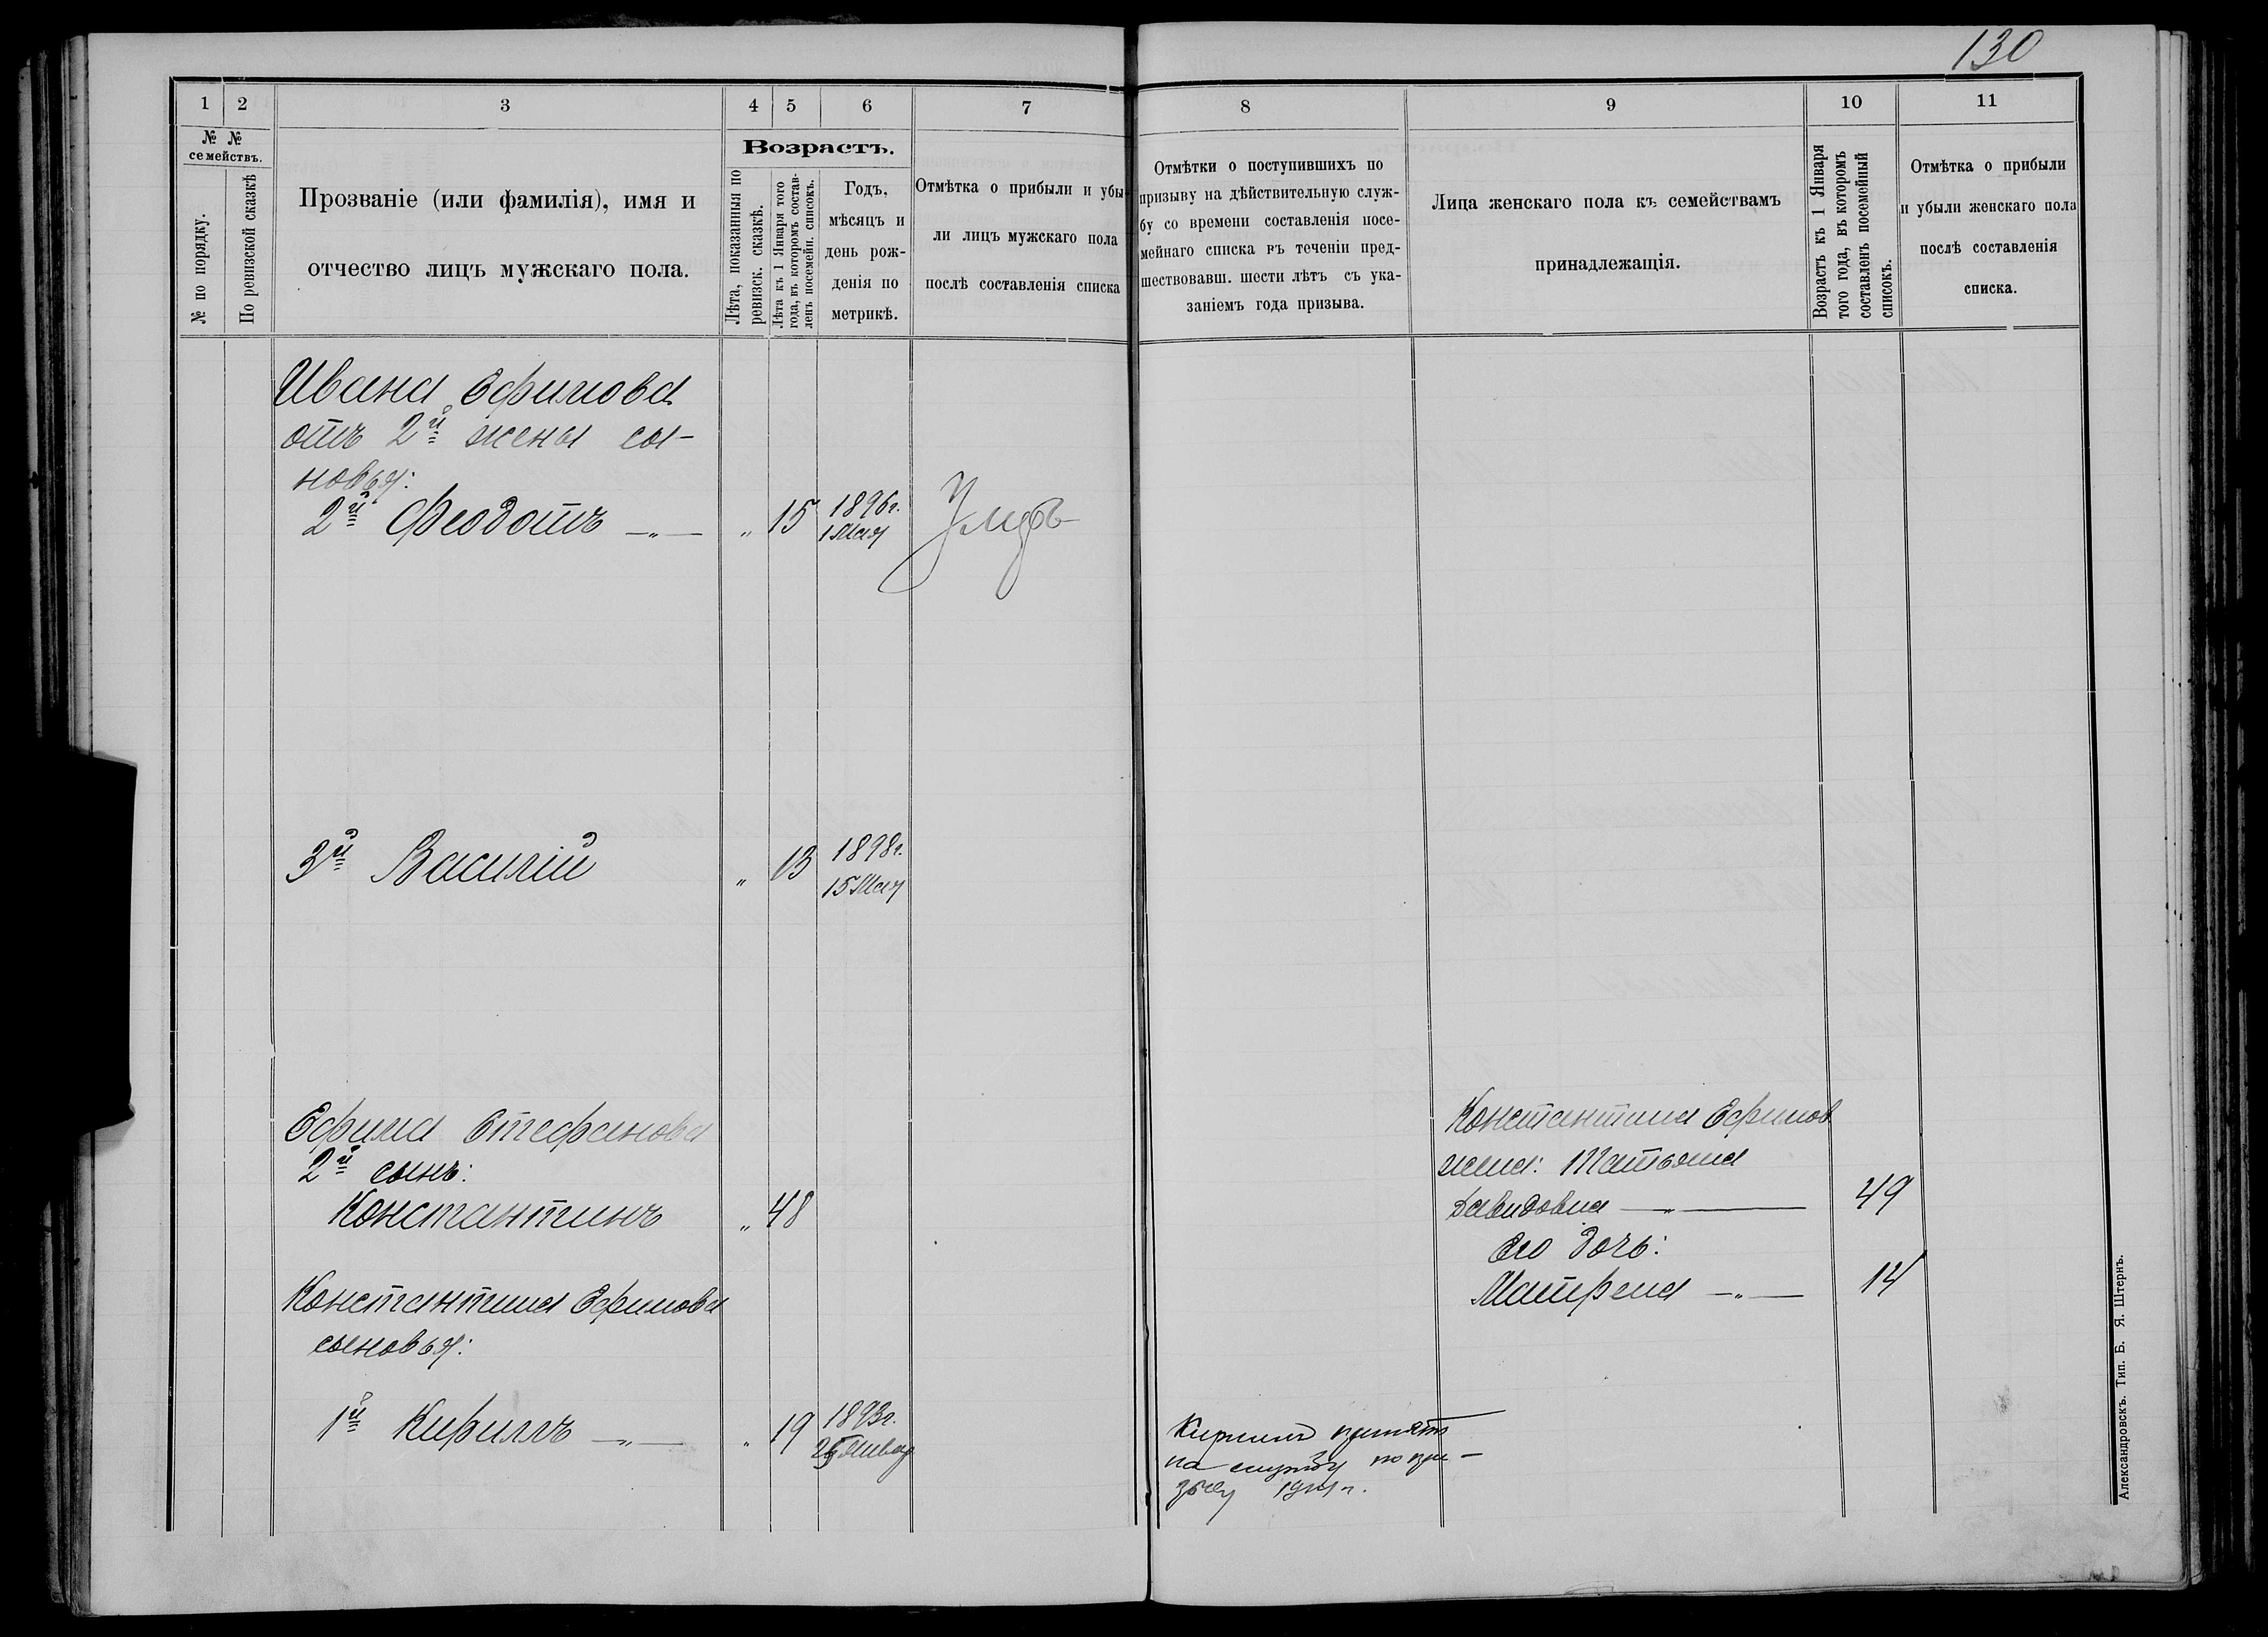 130
1 2 3 4 5 6 7
№ № семействъ.
№ по порядку.
По ревизской сказкѣ
Прозваніе (или фамилія), имя и
отчество лицъ мужскаго пола.
Возрастъ.
Лѣта, показанныя по
ревизск. сказкѣ.
Лѣта къ 1 Января того
года, въ которомъ состав-
ленъ посемейн. списокъ.
Годъ,
мѣсяцъ и
день рож-
денія по
метрикѣ.
Отмѣтка о прибыли и убы-
ли лицъ мужскаго пола
послѣ составленія списка
Ивана Ефимова
отъ 2й жены сы-
новья:
2й Феодотъ —„— „ 15 1896г.
1 Мая
Умеръ
3й Василій „ 13 1898г.
15 Мая
Ефима Стефанова
2й сынъ:
Константинъ „ 48
Константина Ефимова
сыновья:
1й Кириллъ —„— „ 19 1893г.
25 Январ
8 9 10 11
Отмѣтки о поступившихъ по
призыву на дѣйствительную служ-
бу со времени составленія посе-
мейнаго списка въ теченіи пред-
шествовавш. шести лѣтъ съ ука-
заніемъ года призыва.
Лица женскаго пола къ семействамъ
принадлежащія.
Возрастъ къ 1 Января
того года, въ которомъ
составленъ посемейный
списокъ.
Отмѣтка о прибыли
и убыли женскаго пола
послѣ составленія
списка.
Константина Ефимов
жена: Татьяна
Давидовна —„— 49
Его дочь:
Матрена —„— 14
Кирилъ принятъ
на службу по при-
зыву г.
Александровскъ. Тип. Б. Я. Штернъ.